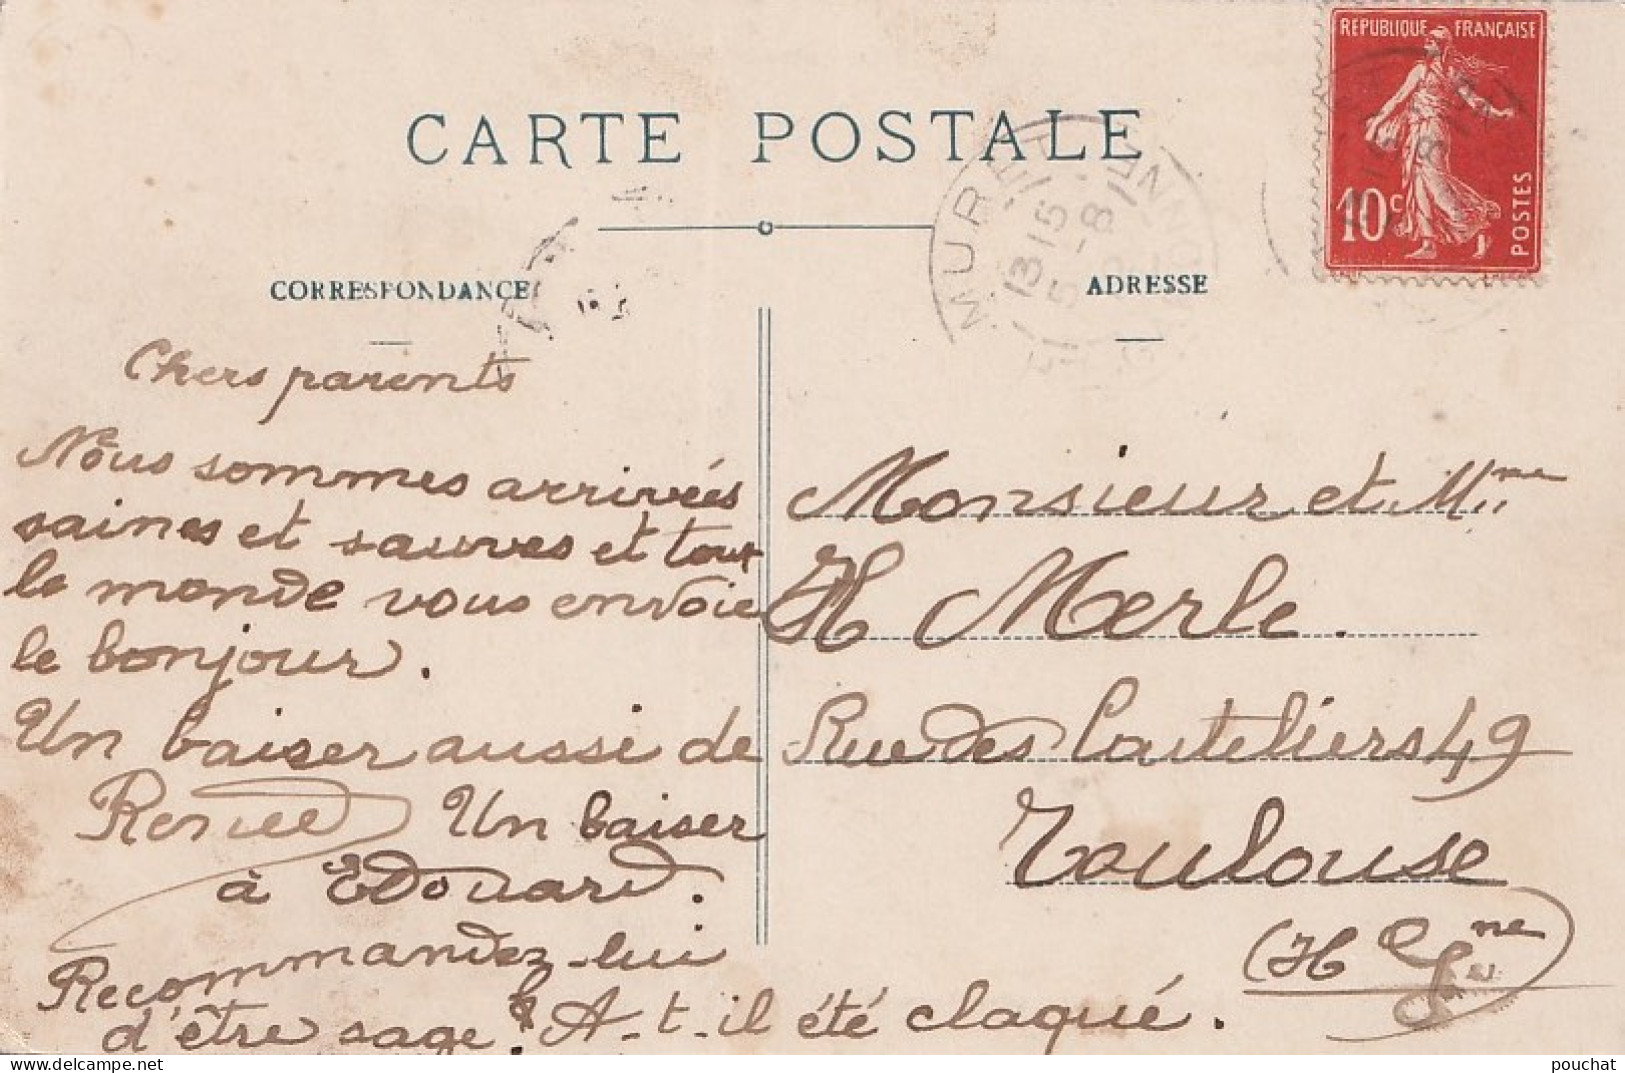 RÉPUBLIQUE FRANÇAISE
10c
POSTES
CARTE POSTALE
MURET
13 15
5-8
GARONNE
CORRESPONDANCE
ADRESSE
Chers parents
Nous sommes arrivées
saines et sauves et tout
le monde vous envoie
le bonjour.
Un baiser aussi de
Renée Un baiser
à Edouard.
Recommandez-lui
d'être sage. A-t-il été claqué.
Monsieur et Mme
H Merle.
Rue des Couteliers 49
Toulouse
(Hte Gne)
pouchat